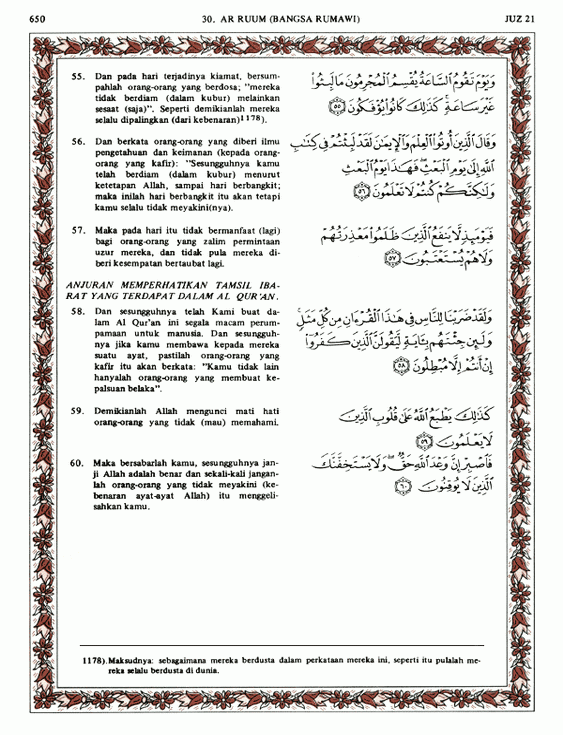 650
30. AR RUUM (BANGSA RUMAWI)
JUZ 21
55. Dan pada hari terjadinya kiamat, bersum-
pahlah orang-orang yang berdosa; "mereka
tidak berdiam (dalam kubur) melainkan
sesaat (saja)". Seperti demikianlah mereka
selalu dipalingkan (dari kebenaran)1178).
وَيَوْمَ تَقُومُ ٱلسَّاعَةُ يُقْسِمُ ٱلْمُجْرِمُونَ مَا لَبِثُوا۟
غَيْرَ سَاعَةٍ ۚ كَذَٰلِكَ كَانُوا۟ يُؤْفَكُونَ ٥٥
56. Dan berkata orang-orang yang diberi ilmu
pengetahuan dan keimanan (kepada orang-
orang yang kafir): "Sesungguhnya kamu
telah berdiam (dalam kubur) menurut
ketetapan Allah, sampai hari berbangkit;
maka inilah hari berbangkit itu akan tetapi
kamu selalu tidak meyakini(nya).
وَقَالَ ٱلَّذِينَ أُوتُوا۟ ٱلْعِلْمَ وَٱلْإِيمَٰنَ لَقَدْ لَبِثْتُمْ فِى كِتَٰبِ
ٱللَّهِ إِلَىٰ يَوْمِ ٱلْبَعْثِ ۖ فَهَٰذَا يَوْمُ ٱلْبَعْثِ
وَلَٰكِنَّكُمْ كُنتُمْ لَا تَعْلَمُونَ ٥٦
57. Maka pada hari itu tidak bermanfaat (lagi)
bagi orang-orang yang zalim permintaan
uzur mereka, dan tidak pula mereka di-
beri kesempatan bertaubat lagi.
فَيَوْمَئِذٍ لَّا يَنفَعُ ٱلَّذِينَ ظَلَمُوا۟ مَعْذِرَتُهُمْ
وَلَا هُمْ يُسْتَعْتَبُونَ ٥٧
ANJURAN MEMPERHATIKAN TAMSIL IBA-
RAT YANG TERDAPAT DALAM AL QUR'AN.
58. Dan sesungguhnya telah Kami buat da-
lam Al Qur'an ini segala macam perum-
pamaan untuk manusia. Dan sesungguh-
nya jika kamu membawa kepada mereka
suatu ayat, pastilah orang-orang yang
kafir itu akan berkata: "Kamu tidak lain
hanyalah orang-orang yang membuat ke-
palsuan belaka".
وَلَقَدْ ضَرَبْنَا لِلنَّاسِ فِى هَٰذَا ٱلْقُرْءَانِ مِن كُلِّ مَثَلٍ ۚ
وَلَئِن جِئْتَهُم بِـَٔايَةٍ لَّيَقُولَنَّ ٱلَّذِينَ كَفَرُوٓا۟
إِنْ أَنتُمْ إِلَّا مُبْطِلُونَ ٥٨
59. Demikianlah Allah mengunci mati hati
orang-orang yang tidak (mau) memahami.
كَذَٰلِكَ يَطْبَعُ ٱللَّهُ عَلَىٰ قُلُوبِ ٱلَّذِينَ
لَا يَعْلَمُونَ ٥٩
60. Maka bersabarlah kamu, sesungguhnya jan-
ji Allah adalah benar dan sekali-kali jangan-
lah orang-orang yang tidak meyakini (ke-
benaran ayat-ayat Allah) itu menggeli-
sahkan kamu.
فَٱصْبِرْ إِنَّ وَعْدَ ٱللَّهِ حَقٌّ ۖ وَلَا يَسْتَخِفَّنَّكَ
ٱلَّذِينَ لَا يُوقِنُونَ ٦٠
1178). Maksudnya: sebagaimana mereka berdusta dalam perkataan mereka ini, seperti itu pulalah me-
reka selalu berdusta di dunia.